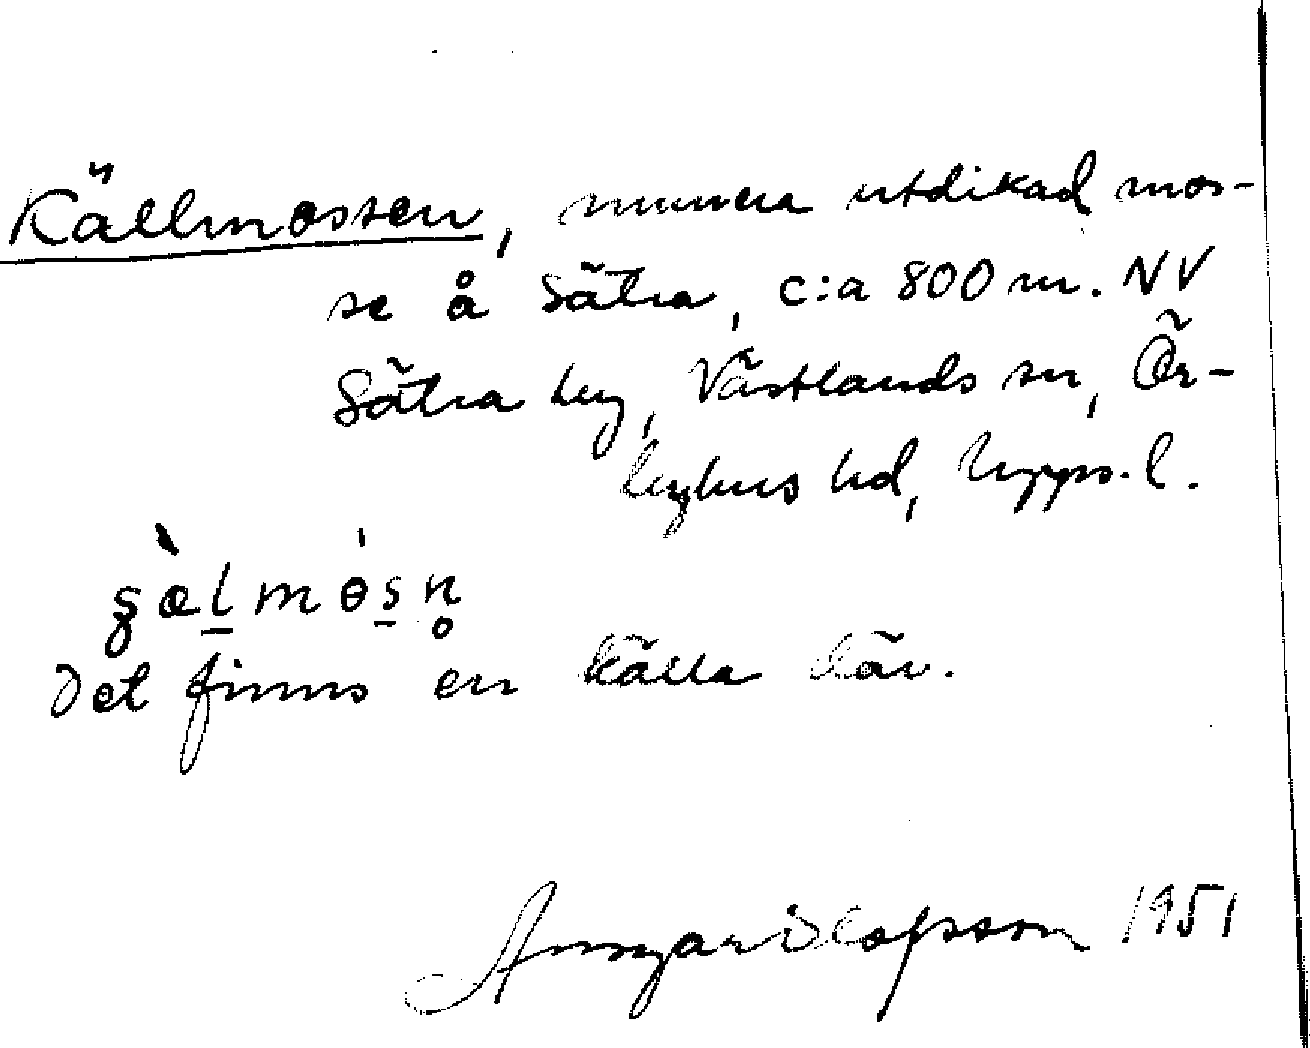 Källmossen, numera utdikad mos-
se å Sätra, c:a 800 m. NV
Sätra by, Västlands sn, Ör-
byhus hd, Upps. l.
Det finns en källa där.
Olofsson 1951